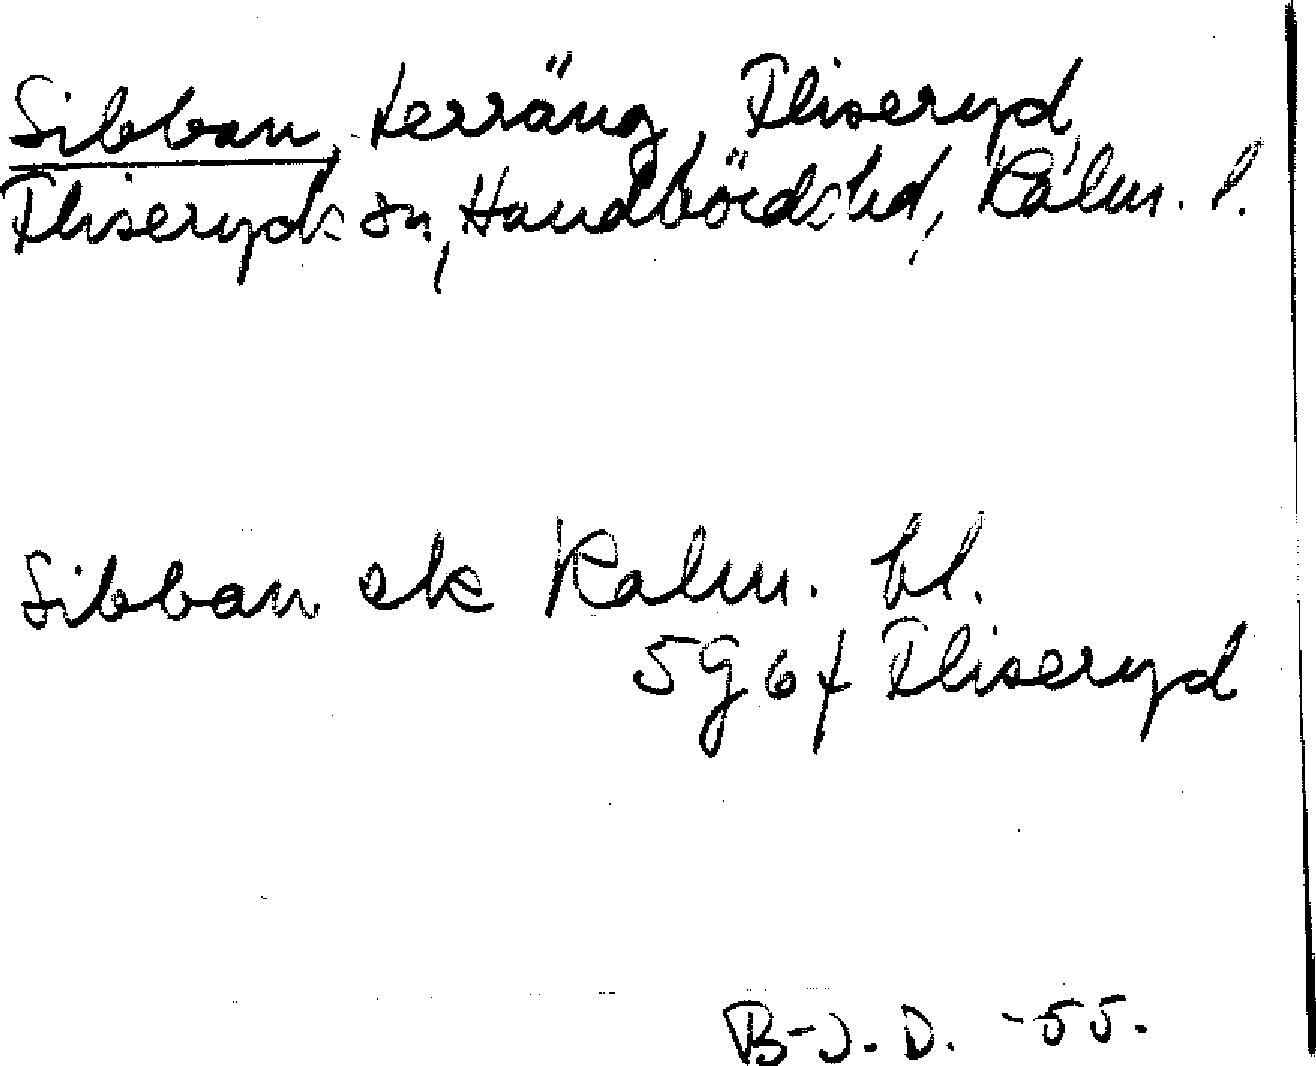 Sibban, terräng, Fliseryd
Fliseryds sn, Handbörds hd, Kalm. l.
Sibban ek Kalm. bl.
5G6f Fliseryd
B-J. D. -55.